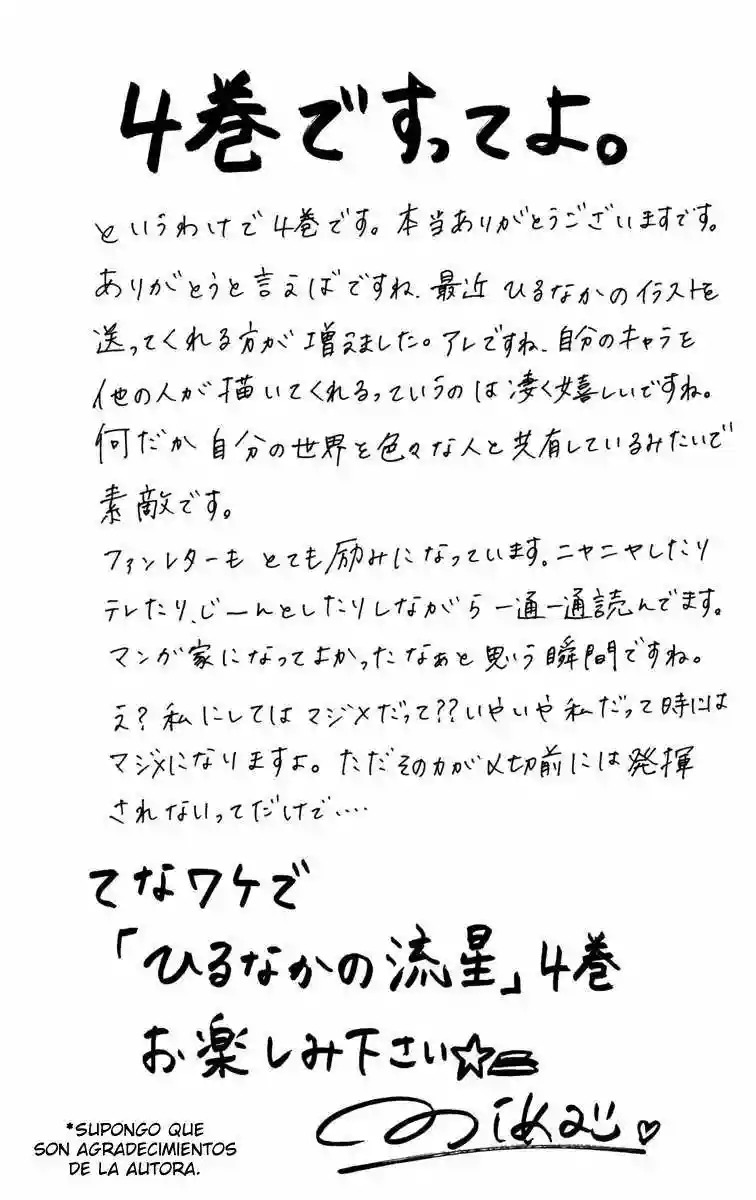 4巻ですってよ。
というわけで4巻です。本当ありがとうございますです。
ありがとうと言えばですね、最近 ひるなかのイラストを
送ってくれる方が増えました。アレですね、自分のキャラを
他の人が描いてくれるっていうのは凄く嬉しいですね。
何だか自分の世界を色々な人と共有しているみたいで
素敵です。
ファンレターも とても励みになっています。ニヤニヤしたり
テレたり、じーんとしたりしながら 一通一通読んでます。
マンガ家になってよかったなぁと思う瞬間ですね。
え?私にしてはマジメだって??いやいや私だって時には
マジメになりますよ。ただその力が〆切前には発揮
されないってだけで‥‥
てなワケで
「ひるなかの流星」4巻
お楽しみ下さい☆
*SUPONGO QUE
SON AGRADECIMIENTOS
DE LA AUTORA.